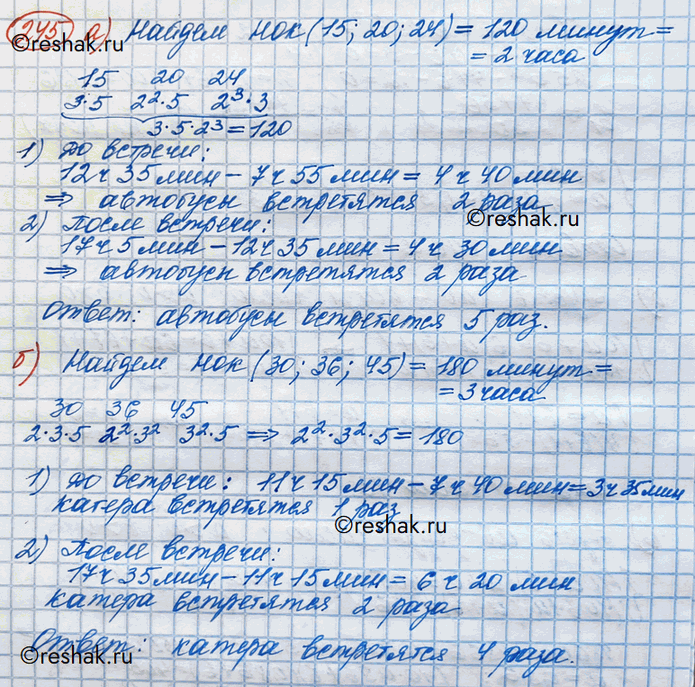 245 а) Найдем НОК (15; 20; 24) = 120 минут =
©reshak.ru
= 2 часа
15 20 24
3·5 2²·5 2³·3
3·5·2³ = 120
1) До встречи:
12 ч 35 мин - 7 ч 55 мин = 4 ч 40 мин
⇒ автобусы встретятся 2 раза
©reshak.ru
2) После встречи:
17 ч 5 мин - 12 ч 35 мин = 4 ч 30 мин
⇒ автобусы встретятся 2 раза
Ответ: автобусы встретятся 5 раз.
б) Найдем НОК (30; 36; 45) = 180 минут =
= 3 часа
30 36 45
2·3·5 2²·3² 3²·5 ⇒ 2²·3²·5 = 180
1) До встречи: 11 ч 15 мин - 7 ч 40 мин = 3 ч 35 мин
катера встретятся 1 раз
©reshak.ru
2) После встречи:
17 ч 35 мин - 11 ч 15 мин = 6 ч 20 мин
катера встретятся 2 раза
Ответ: катера встретятся 4 раза.
©reshak.ru